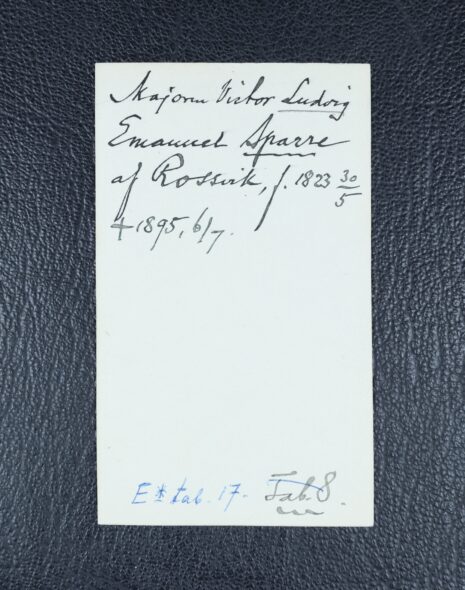 Majoren Victor Ludvig
Emanuel Sparre
af Rossvik, f. 1823 30/5
+ 1895, 6/7.
E* tab. 17. Tab. 8.